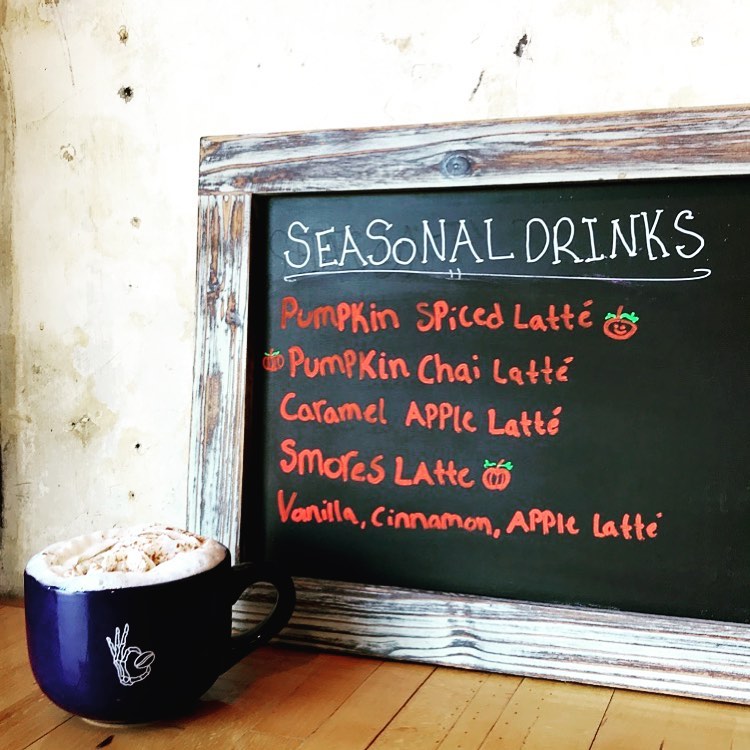 SEASONAL DRINKS
Pumpkin Spiced Latté
Pumpkin Chai Latté
Caramel Apple Latté
Smores Latte
Vanilla, Cinnamon, Apple Latté